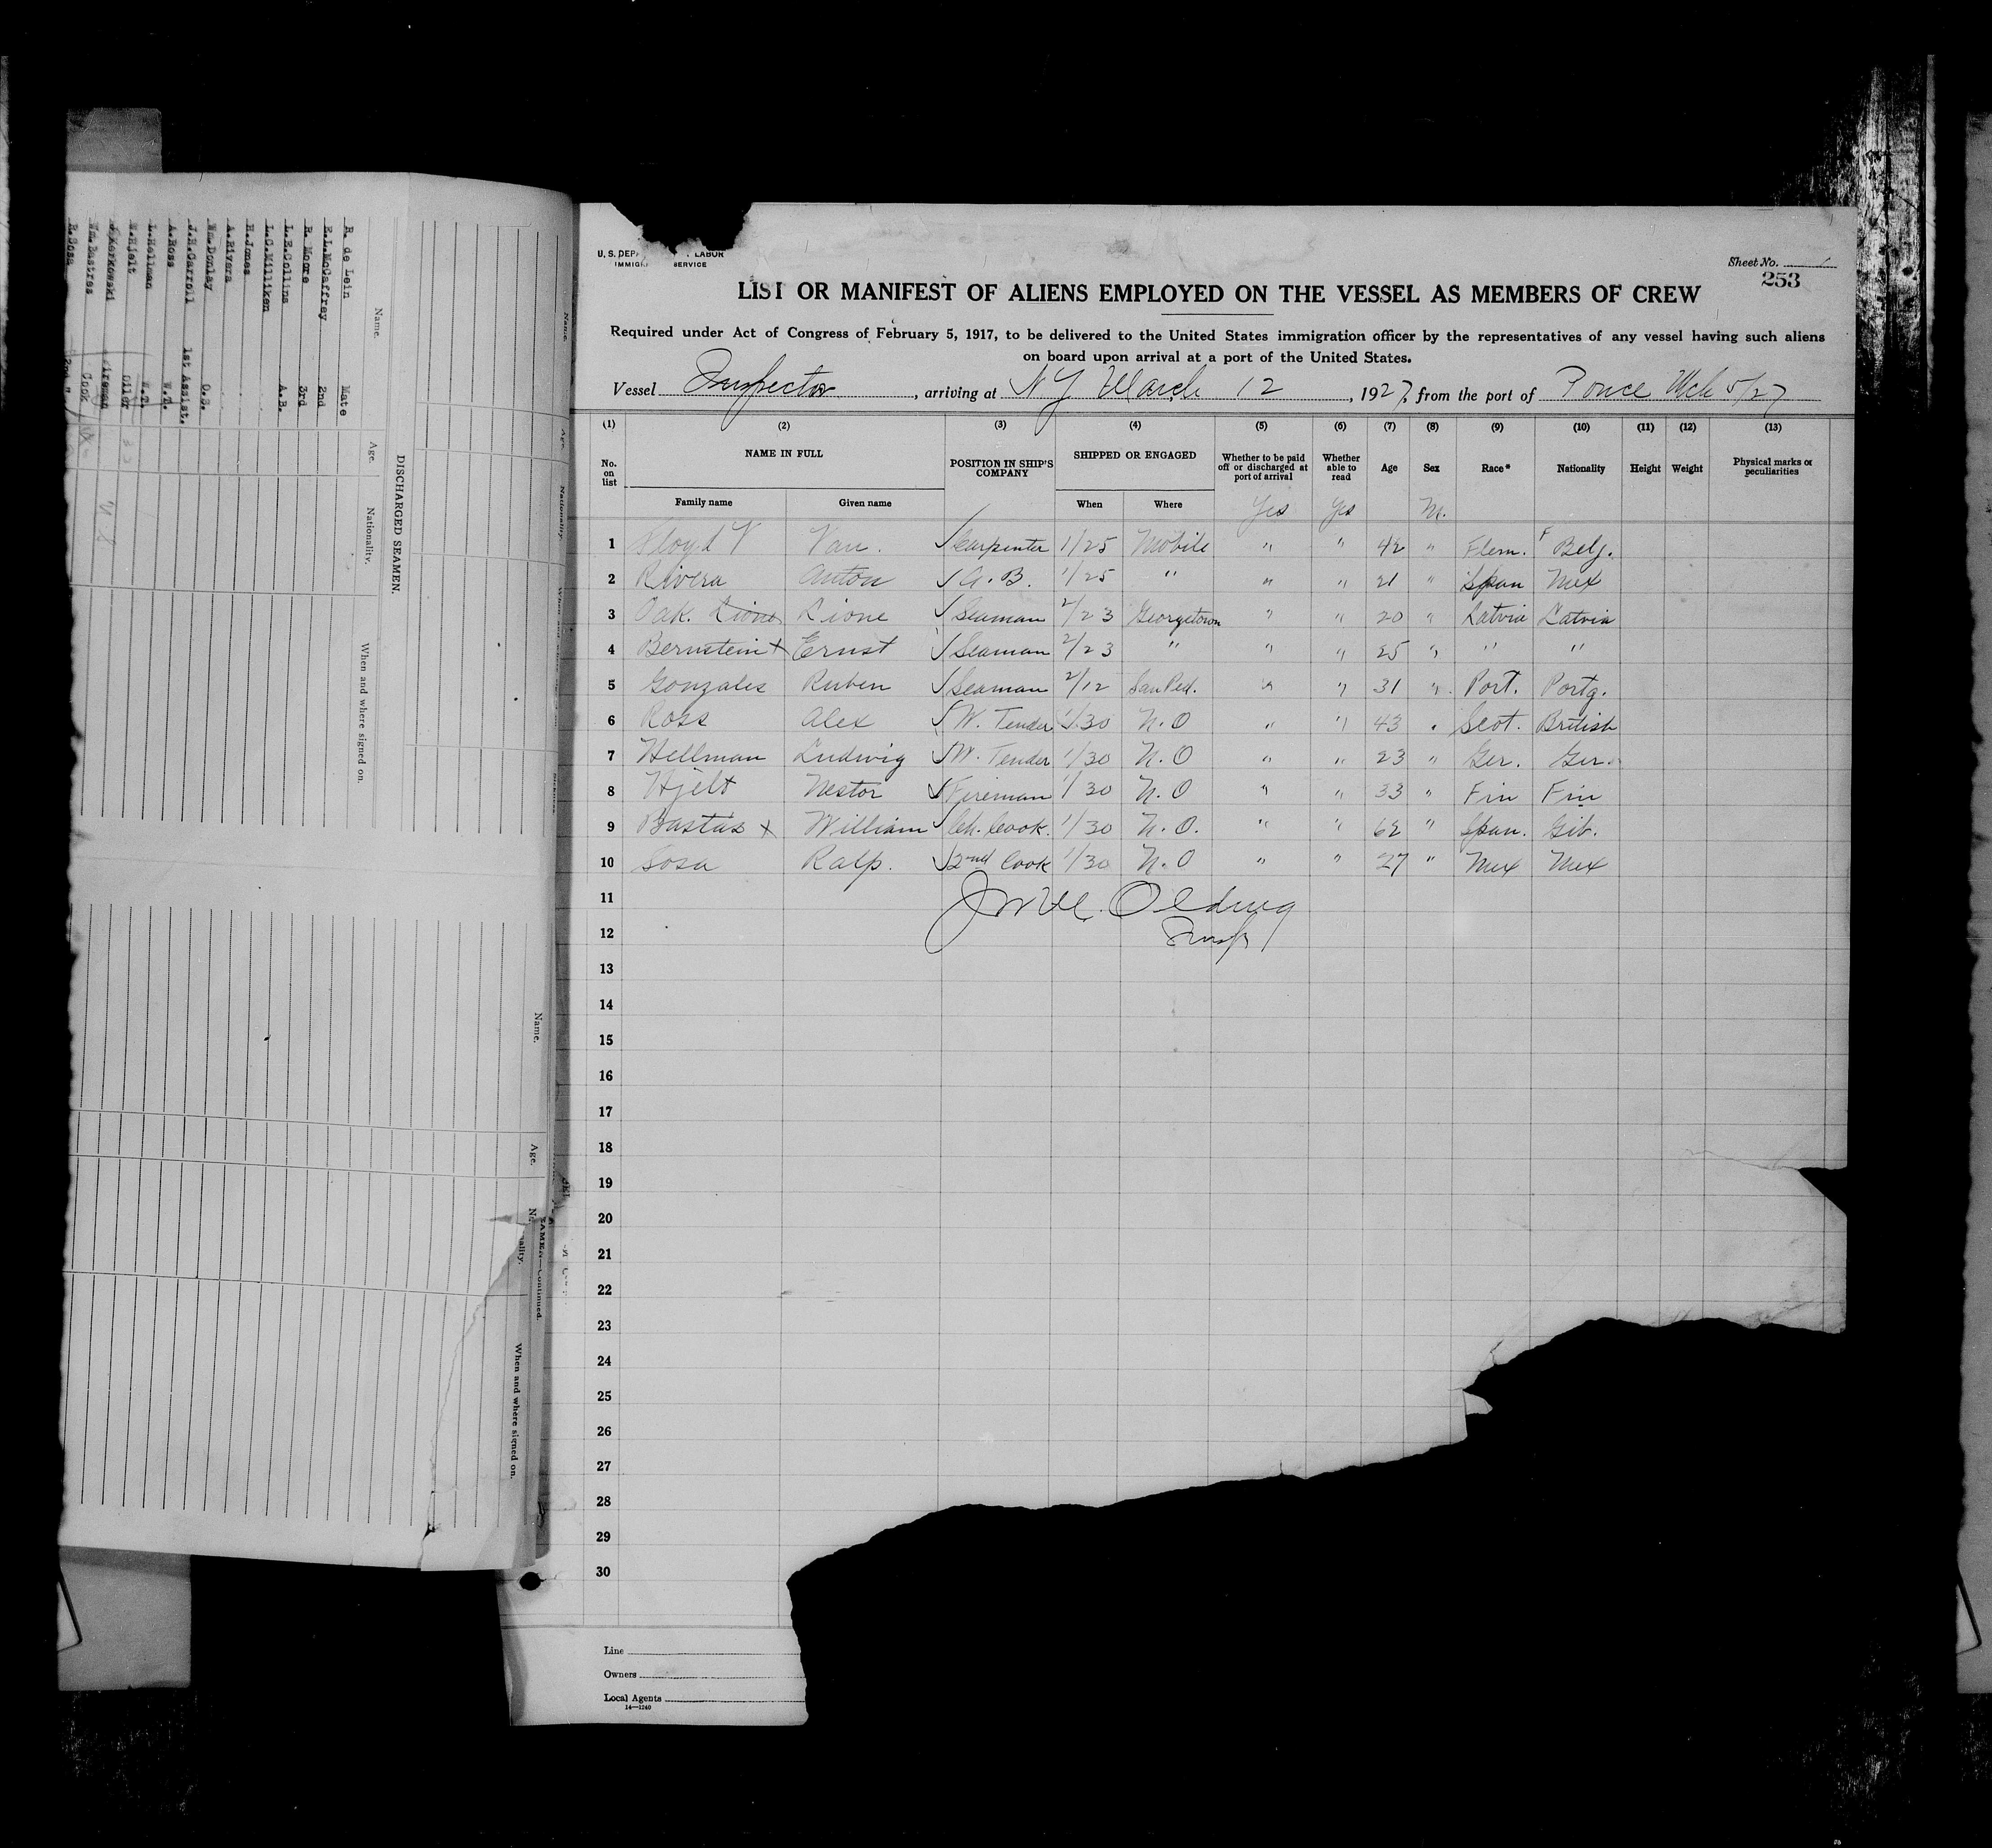 DISCHARGED SEAMEN.
Name. Age. Nationality. When and where signed on.
R. de Lein Mate
E.L.McCaffrey 2nd
R. Moore 3rd
L.E.Collins A.B.
L.C.Milliken
H.Jones
A.Rivera
Wm.Donlay O.S.
J.H.Carroll 1st Assist.
A.Ross W.T.
L.Hellman W.T.
N.Hjelt Oiler
Kerkowski Fireman
Wm.Bastres Cook
R.Sosa 2nd "
Name. Age. When and where signed on.
SEAMEN—Continued.
U. S. DEP LABOR
IMMIG SERVICE
Sheet No. 1
253
LIST OR MANIFEST OF ALIENS EMPLOYED ON THE VESSEL AS MEMBERS OF CREW
Required under Act of Congress of February 5, 1917, to be delivered to the United States immigration officer by the representatives of any vessel having such aliens
on board upon arrival at a port of the United States.
Vessel Inspector, arriving at N Y March 12, 1927, from the port of Ponce Mch 5/27
(1) (2) (3) (4) (5) (6) (7) (8) (9) (10) (11) (12) (13)
No. on list NAME IN FULL POSITION IN SHIP'S COMPANY SHIPPED OR ENGAGED Whether to be paid off or discharged at port of arrival Whether able to read Age Sex Race* Nationality Height Weight Physical marks or peculiarities
Family name Given name When Where Yes Yes M.
1 Floyd V Van. Carpenter 1/25 Mobile " " 42 " Flem. F Belg.
2 Rivera Anton A.B. 1/25 " " " 21 " Span Mex
3 Oak. Lione Lione Seaman 2/23 Georgetown " " 20 " Latvia Latvia
4 Bernstein x Ernst Seaman 2/23 " " " 25 " " "
5 Gonzales Ruben Seaman 2/12 San Ped. " " 31 " Port. Portg.
6 Ross Alex W. Tender 1/30 N.O " " 43 " Scot. British
7 Hellman Ludwig W. Tender 1/30 N.O " " 23 " Ger. Ger.
8 Hjelt Nestor Fireman 1/30 N.O " " 33 " Fin Fin
9 Bastas x William Ch. Cook. 1/30 N.O. " " 62 " Span. Gib.
10 Sosa Ralp. 2nd Cook 1/30 N.O " " 27 " Mex Mex
11
12
13
14
15
16
17
18
19
20
21
22
23
24
25
26
27
28
29
30
Line
Owners
Local Agents
14—1240